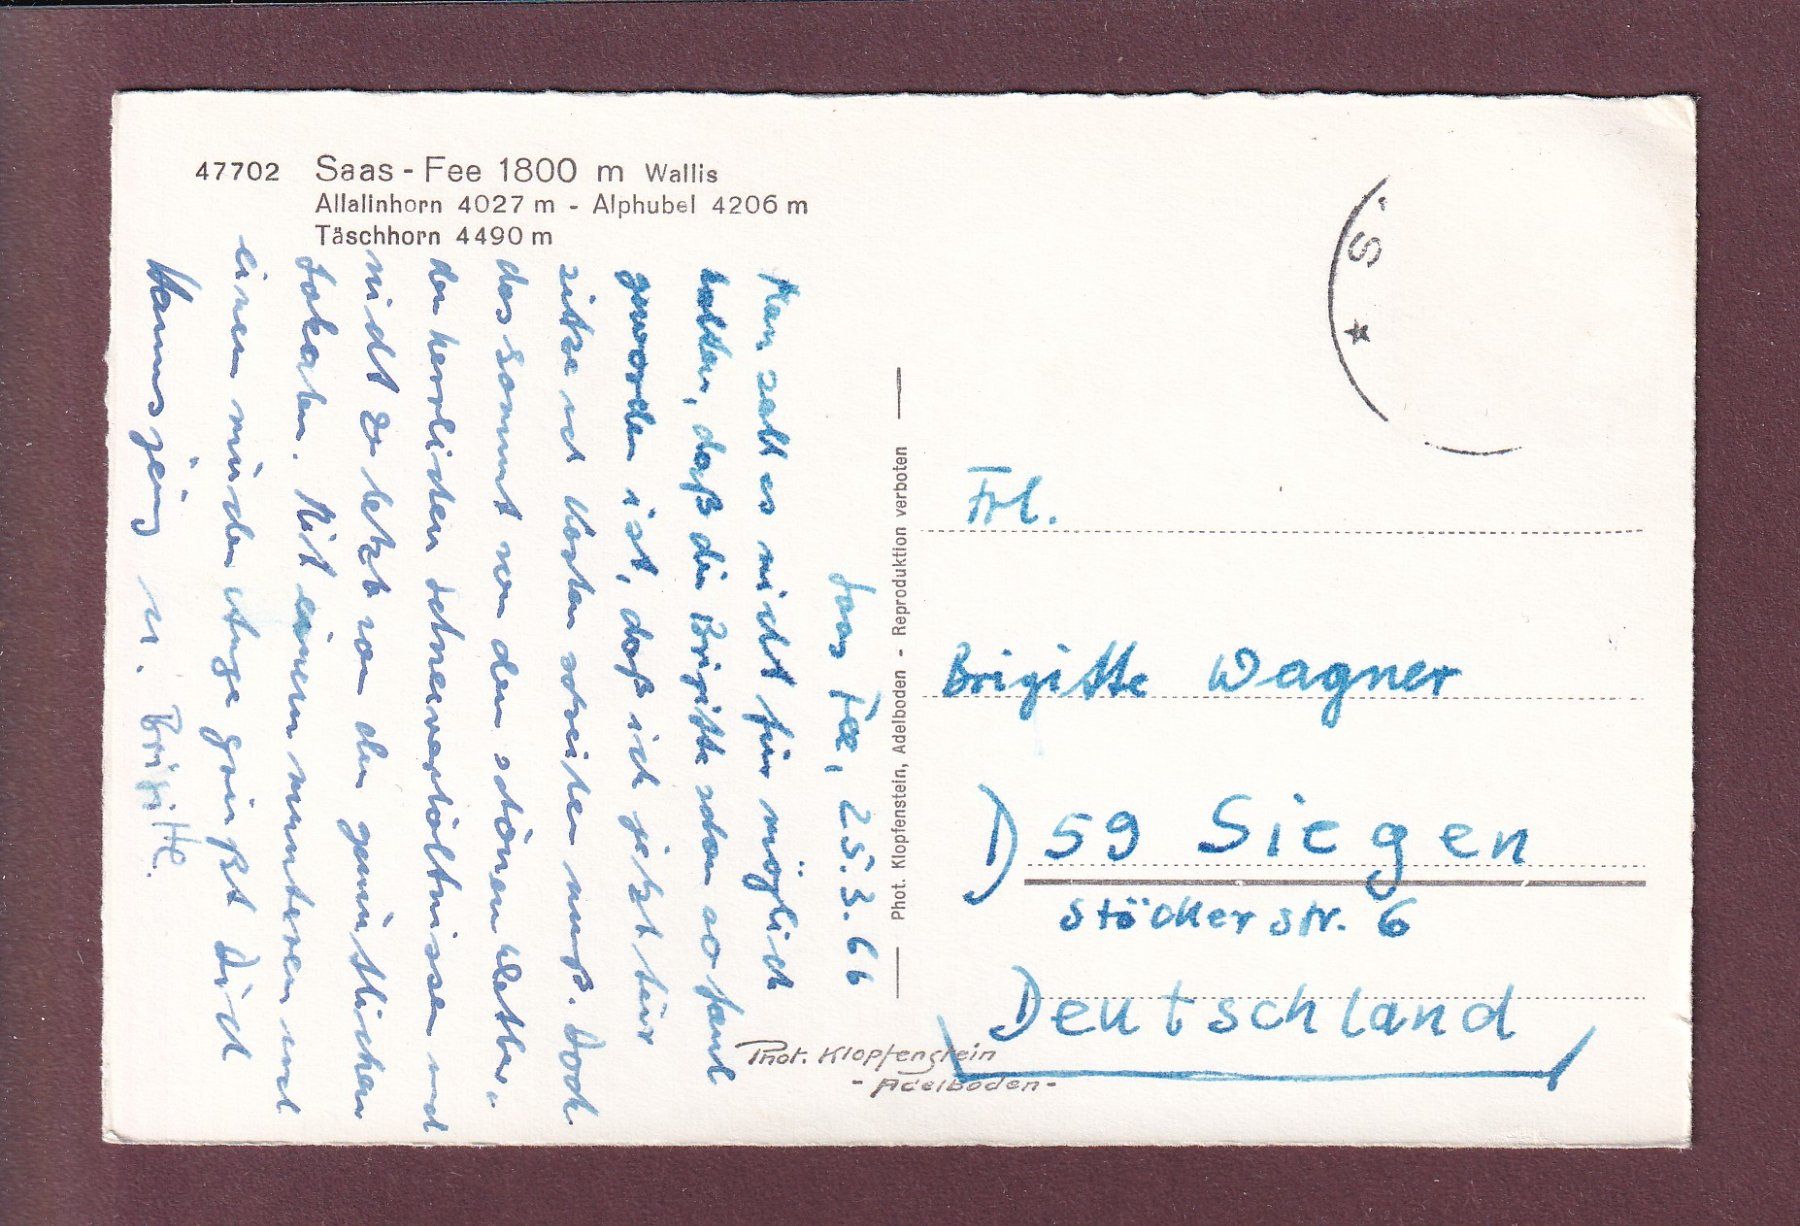 47702 Saas - Fee 1800 m Wallis
Allalinhorn 4027 m - Alphubel 4206 m
Täschhorn 4490 m
Saas Fee, 25.3.66
Man sollt es nicht für möglich
halten, daß die Brigitte schon so faul
geworden ist, daß ich jetzt für
sitze und Karten schreiben muß. Doch
das kommt von dem schönen Wetter,
den herrlichen Schneeverhältnissen und
nicht zu letzt von den gemütlichen
. Mit einem munteren und
einem müden Auge grüßt Dich
Hansjörg u. Brigitte.
Phot. Klopfenstein, Adelboden - Reproduktion verboten
S.
Frl.
Brigitte Wagner
D 59 Siegen
Stöckerstr. 6
Deutschland
Phot. Klopfenstein
- Adelboden -